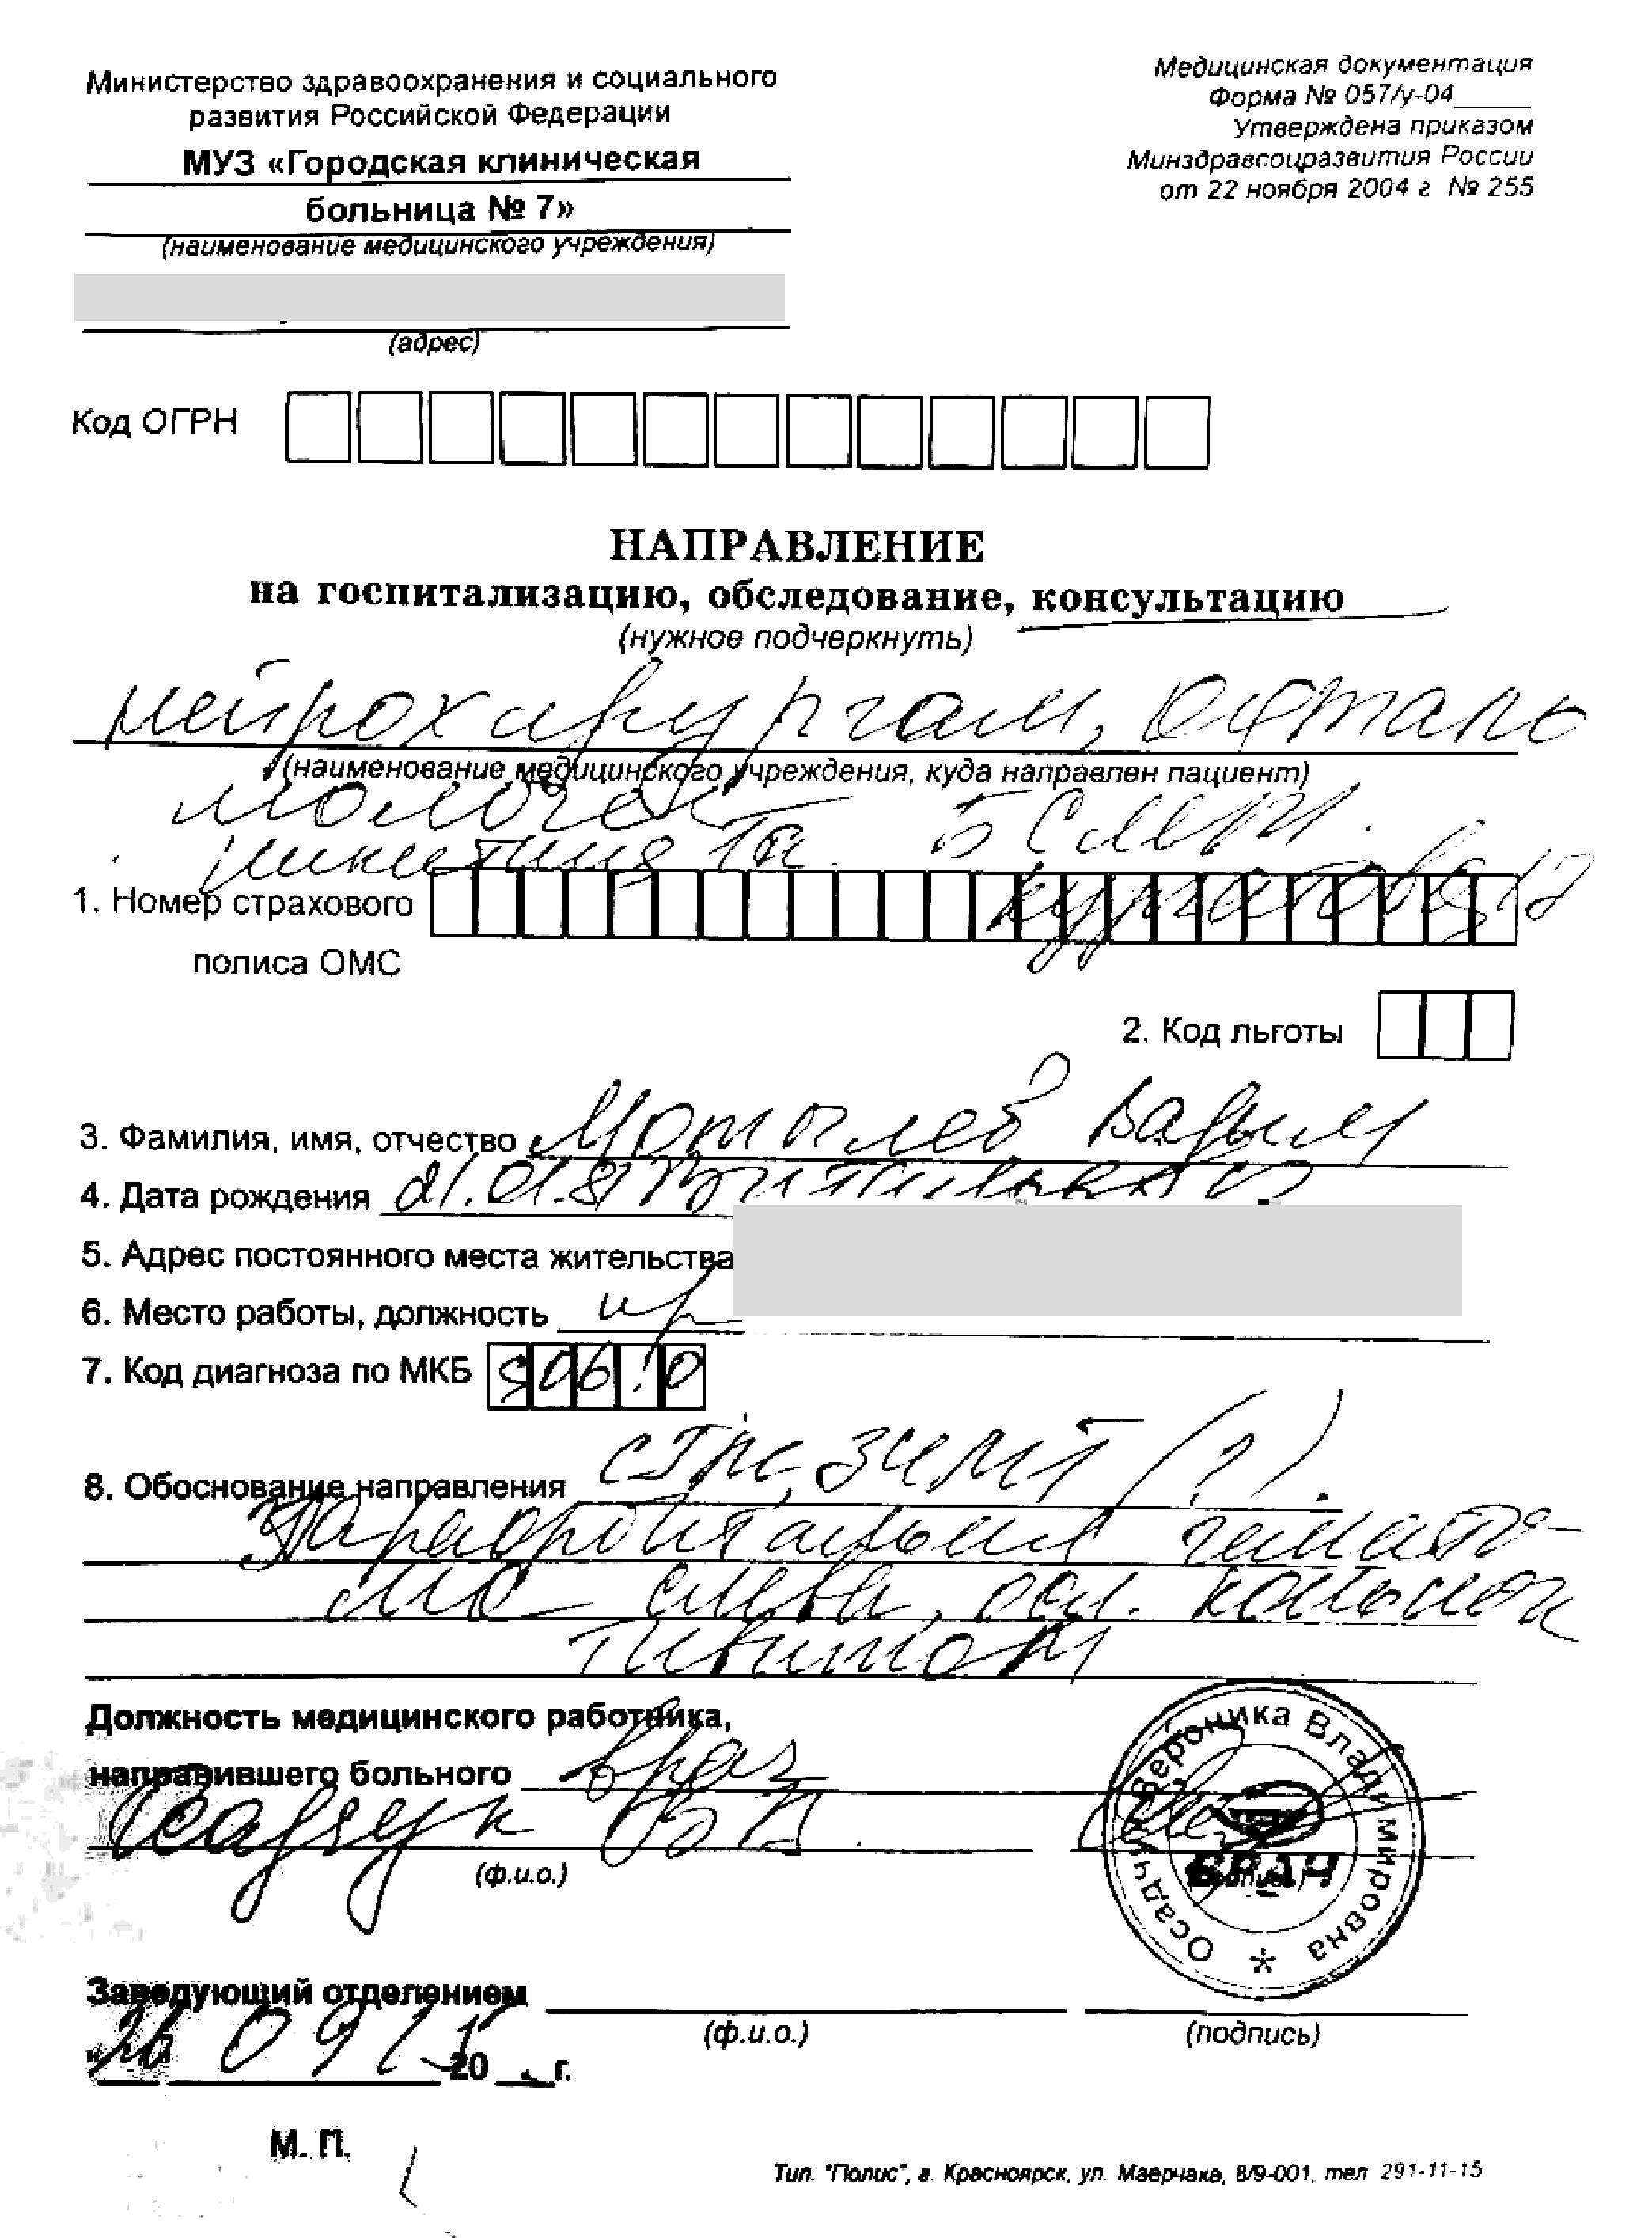 Министерство здравоохранения и социального
развития Российской Федерации
МУЗ «Городская клиническая
больница № 7»
(наименование медицинского учреждения)
(адрес)
Медицинская документация
Форма № 057/у-04
Утверждена приказом
Минздравсоцразвития России
от 22 ноября 2004 г № 255
Код ОГРН
НАПРАВЛЕНИЕ
на госпитализацию, обследование, консультацию
(нужное подчеркнуть)
нейрохирургам, офталь
(наименование медицинского учреждения, куда направлен пациент)
мологам
БСМП.
Курчатова 17
1. Номер страхового
полиса ОМС
2. Код льготы
3. Фамилия, имя, отчество Мотылев Вадим
4. Дата рождения 21.01.81 Витальевич
5. Адрес постоянного места жительства
6. Место работы, должность
7. Код диагноза по МКБ S06.0
8. Обоснование направления СГМ, ЗЧМТ (?).
Параорбитальная гемато-
ма слева, конъюнк
тивит
Должность медицинского работника,
направившего больного врач
Осадчук ВВ
(ф.и.о.)
(подпись)
Осадчук Вероника Владимировна
ВРАЧ
Заведующий отделением
(ф.и.о.)
(подпись)
26 09 15 20 г.
М. П.
Тип. "Полис", г. Красноярск, ул. Маерчака, 8/9-001, тел 291-11-15